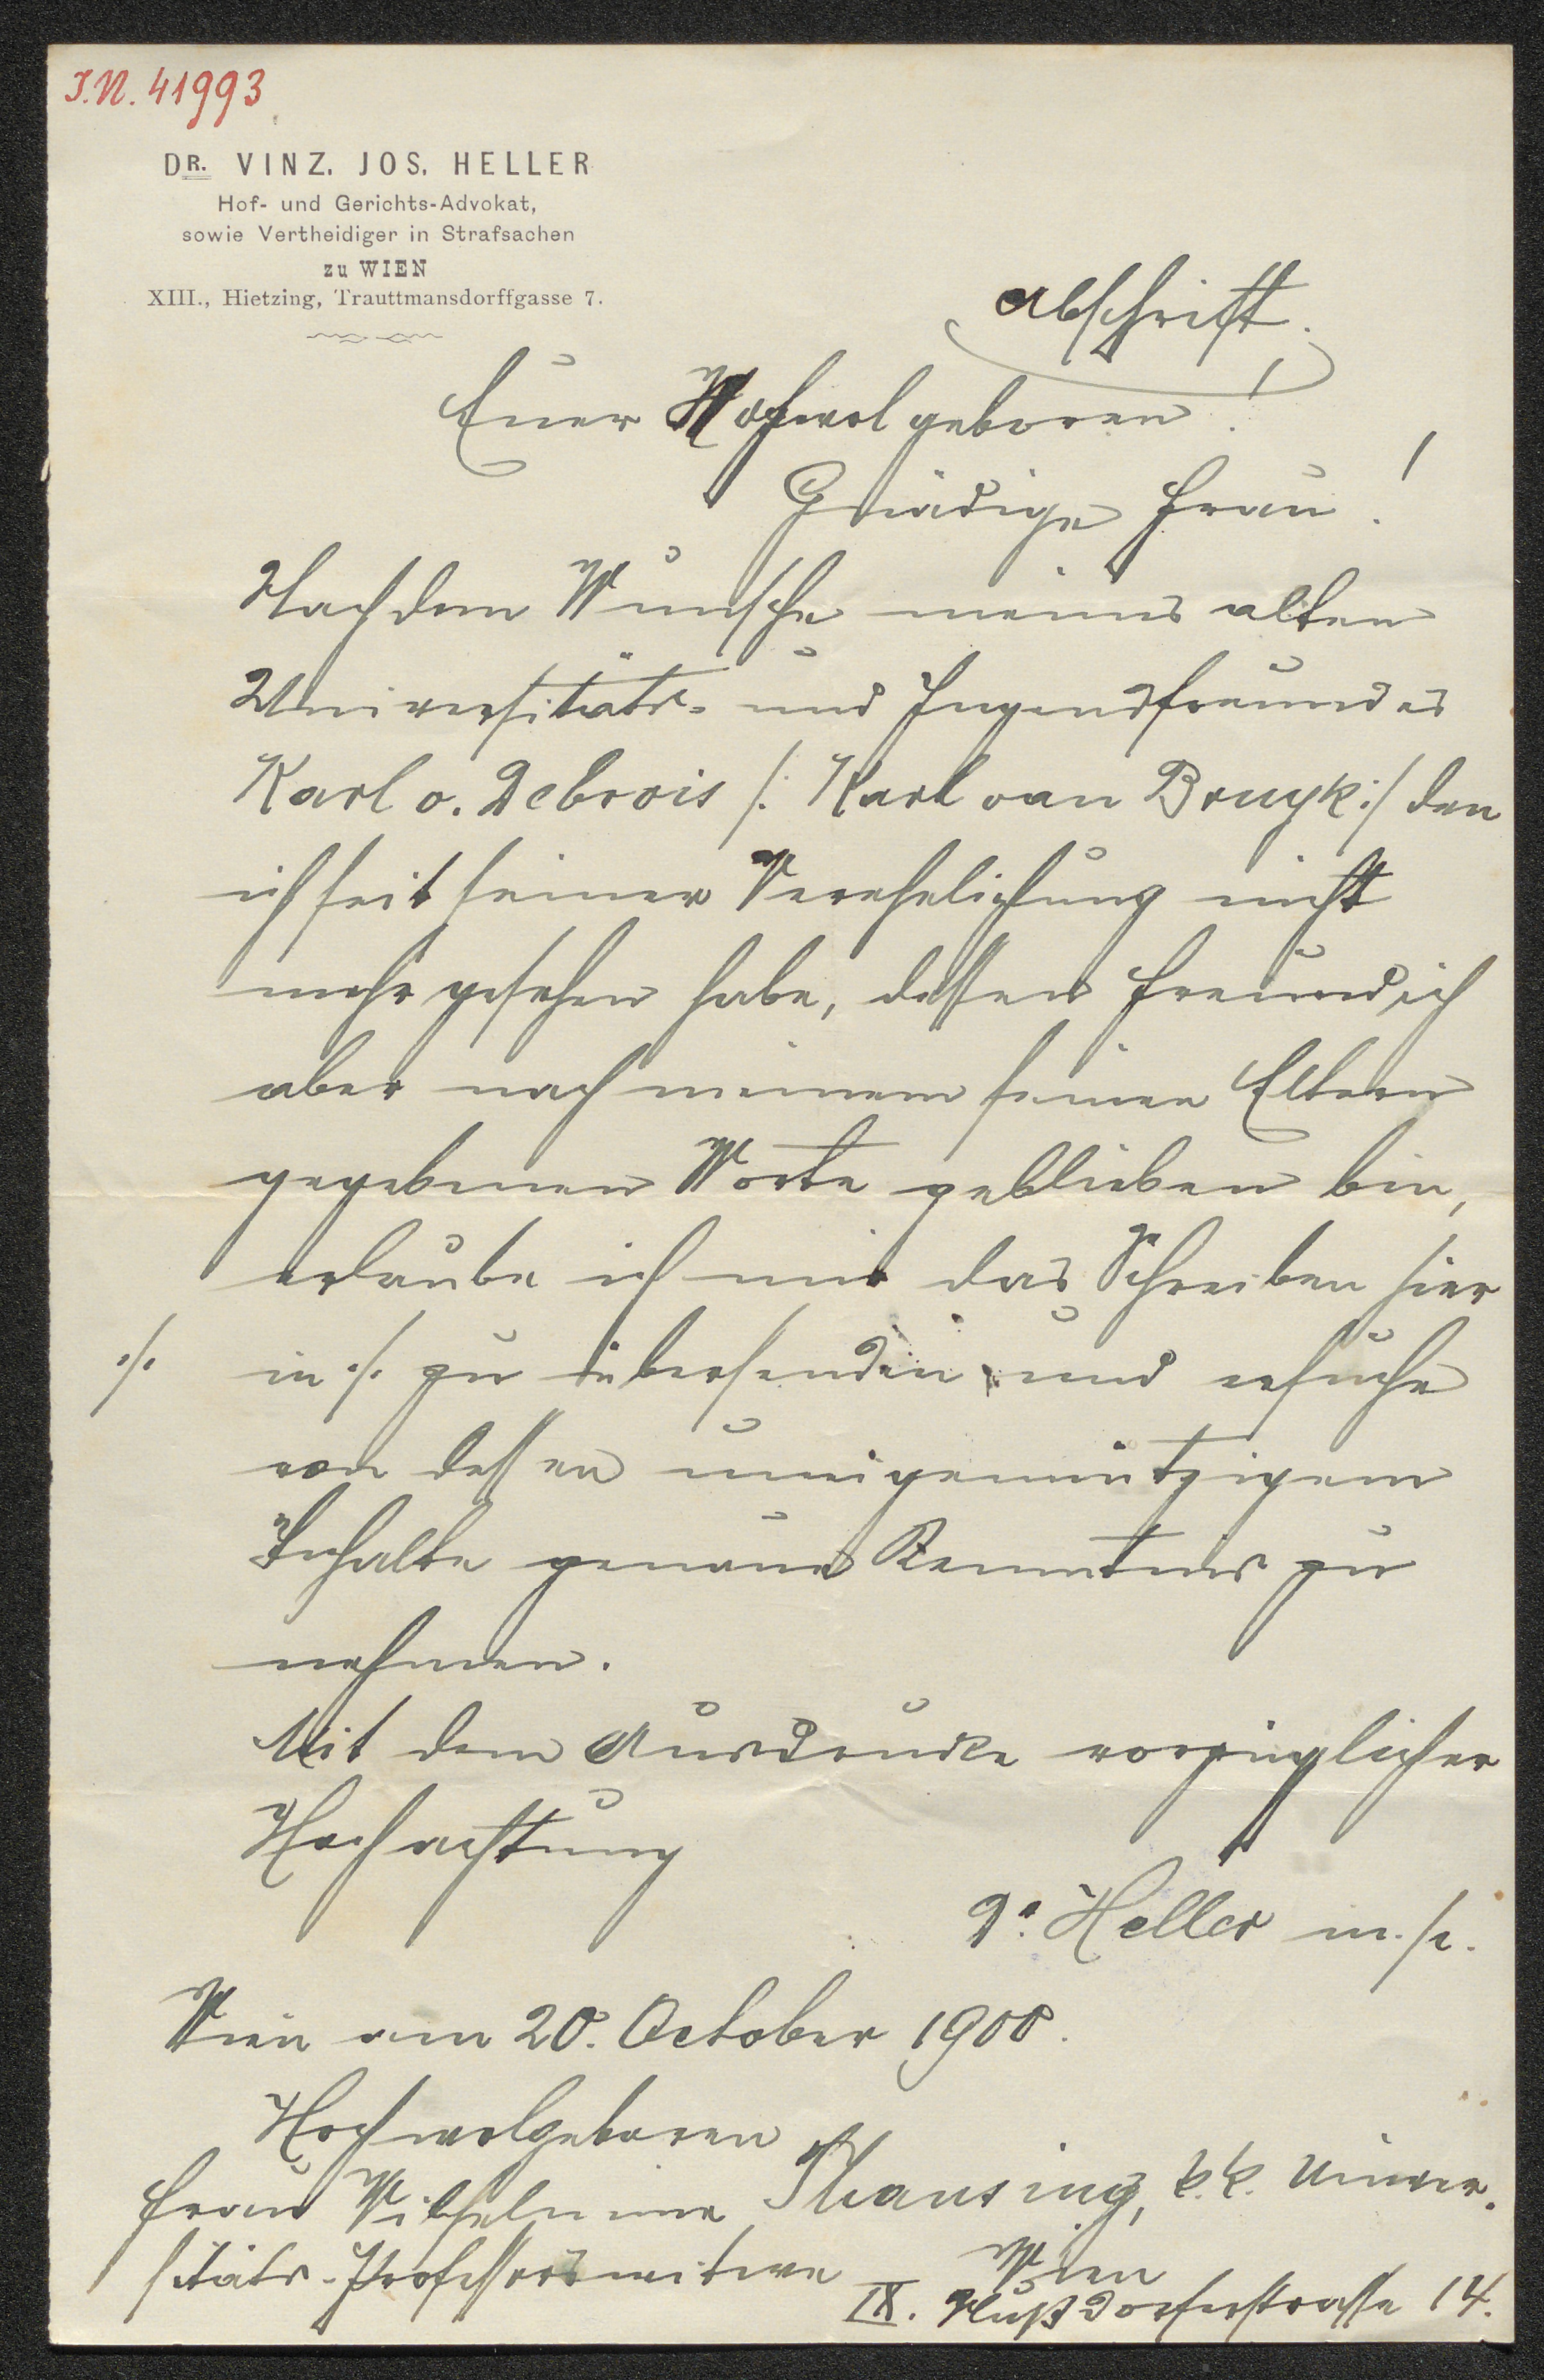 J.N. 41993
DR. VINZ. JOS. HELLER
Hof- und Gerichts-Advokat,
sowie Vertheidiger in Strafsachen
zu WIEN
XIII., Hietzing, Trauttmansdorffgasse 7.
Abschrift.
Euer Hochwolgeboren!
Gnädige Frau!
Nach dem Wunsche meines alten
Universitäts- und Jugendfreundes
Karl v. Debrois /: Karl van Bruyk :/ den
ich seit seiner Verehelichung nicht
mehr gesehen habe, dessen Freund ich
aber nach meinem seinen Eltern
gegebenen Worte geblieben bin,
erlaube ich mir das Schreiben hier
./. in ./. zu übersenden und ersuche
von dessen uneigennützigem
Inhalte genaue Kenntnis zu
nehmen.
Mit dem Ausdrucke vorzüglicher
Hochachtung
Dr. Heller m.p.
Wien am 20. October 1900.
Hochwolgeboren
Frau Wilhelmine Thausing, k.k. Univer-
sitäts-Professorswitwe Wien
IX. Nußdorferstrasse 14.